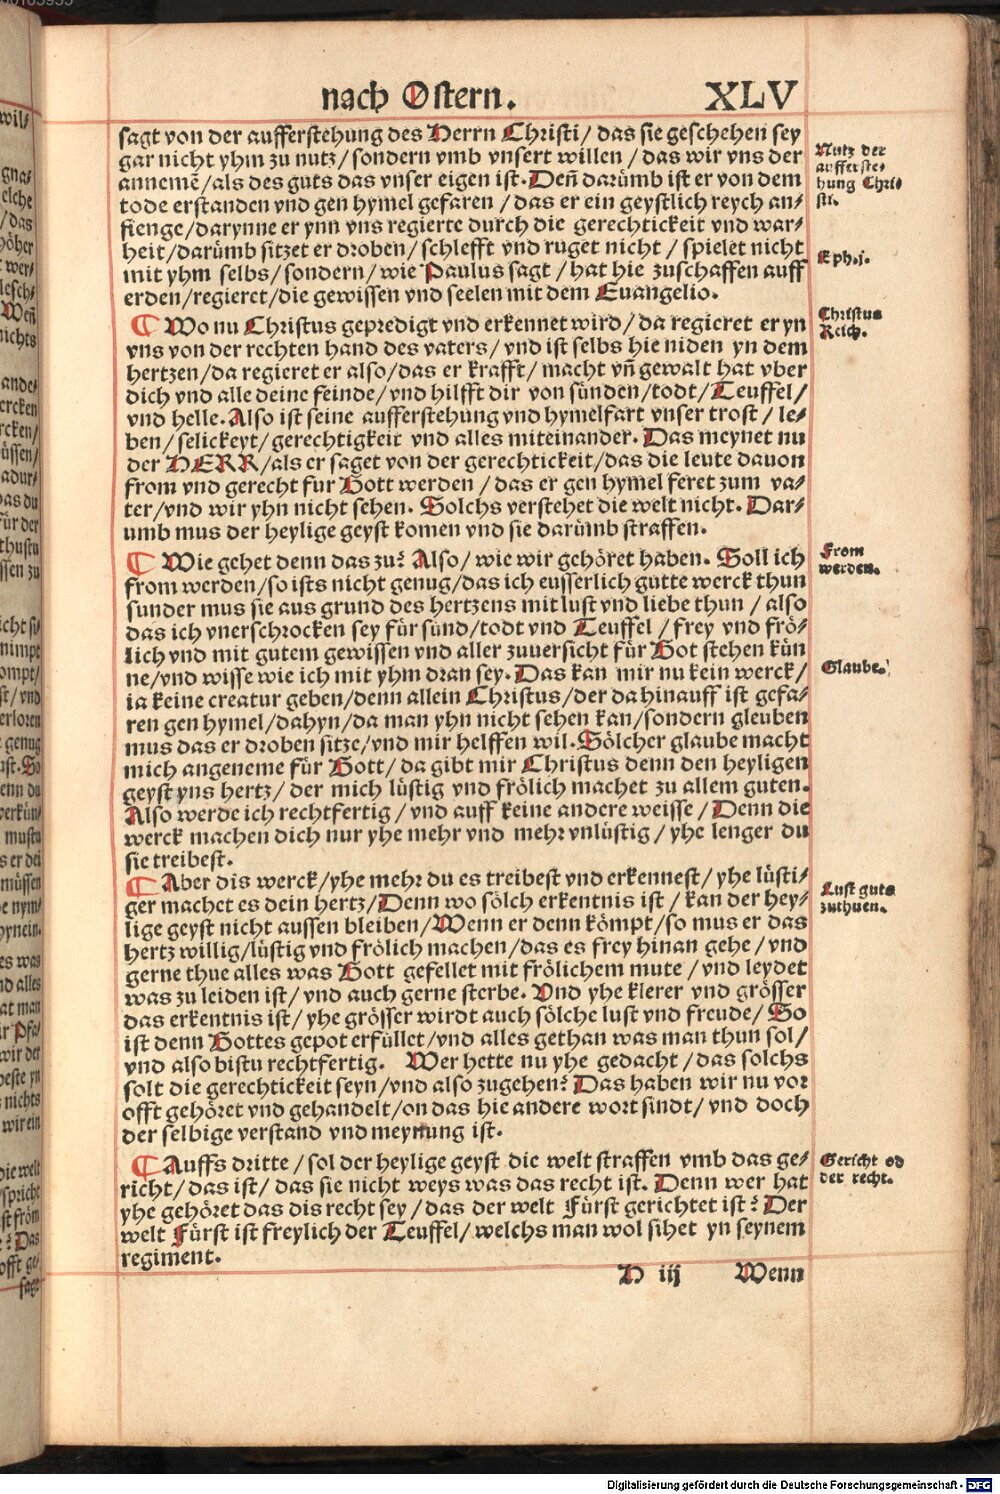 nach Ostern. XLV
sagt von der aufferstehung des Herrn Christi/ das sie geschehen sey
gar nicht yhm zu nutz/ sondern vmb vnsert willen/ das wir vns der
annemẽ/ als des guts das vnser eigen ist. Deñ darümb ist er von dem
tode erstanden vnd gen hymel gefaren/ das er ein geystlich reych an/
fienge/ darynne er ynn vns regierte durch die gerechtickeit vnd war/
heit/ darümb sitzet er droben/ schlefft vnd ruget nicht/ spielet nicht
mit yhm selbs/ sondern/ wie Paulus sagt/ hat hie zuschaffen auff
erden/ regieret/ die gewissen vnd seelen mit dem Euangelio.
¶ Wo nu Christus gepredigt vnd erkennet wird/ da regieret er yn
vns von der rechten hand des vaters/ vnd ist selbs hie niden yn dem
hertzen/ da regieret er also/ das er krafft/ macht vñ gewalt hat vber
dich vnd alle deine feinde/ vnd hilfft dir von sünden/ todt/ Teuffel/
vnd helle. Also ist seine aufferstehung vnd hymelfart vnser trost/ le/
ben/ selickeyt/ gerechtigkeit vnd alles miteinander. Das meynet nu
der HERR/ als er saget von der gerechtickeit/ das die leute dauon
from vnd gerecht fur Gott werden/ das er gen hymel feret zum va/
ter/ vnd wir yhn nicht sehen. Solchs verstehet die welt nicht. Dar/
umb mus der heylige geyst komen vnd sie darümb straffen.
¶ Wie gehet denn das zu? Also/ wie wir gehöret haben. Soll ich
from werden/ so ists nicht genug/ das ich eusserlich gutte werck thun
sunder mus sie aus grund des hertzens mit lust vnd liebe thun/ also
das ich vnerschrocken sey für sünd/ todt vnd Teuffel/ frey vnd frö/
lich vnd mit gutem gewissen vnd aller zuuersicht für Got stehen kün
ne/ vnd wisse wie ich mit yhm dran sey. Das kan mir nu kein werck/
ia keine creatur geben/ denn allein Christus/ der da hinauff ist gefa/
ren gen hymel/ dahyn/ da man yhn nicht sehen kan/ sondern gleuben
mus das er droben sitze/ vnd mir helffen wil. Sölcher glaube macht
mich angeneme für Gott/ da gibt mir Christus denn den heyligen
geyst yns hertz/ der mich lüstig vnd frölich machet zu allem guten.
Also werde ich rechtfertig/ vnd auff keine andere weisse/ Denn die
werck machen dich nur yhe mehr vnd mehr vnlüstig/ yhe lenger du
sie treibest.
¶ Aber dis werck/ yhe mehr du es treibest vnd erkennest/ yhe lüsti/
ger machet es dein hertz/ Denn wo sölch erkentnis ist/ kan der hey/
lige geyst nicht aussen bleiben/ Wenn er denn kömpt/ so mus er das
hertz willig/ lüstig vnd frölich machen/ das es frey hinan gehe/ vnd
gerne thue alles was Gott gefellet mit frölichem mute/ vnd leydet
was zu leiden ist/ vnd auch gerne sterbe. Vnd yhe klerer vnd grösser
das erkentnis ist/ yhe grösser wirdt auch sölche lust vnd freude/ So
ist denn Gottes gepot erfüllet/ vnd alles gethan was man thun sol/
vnd also bistu rechtfertig. Wer hette nu yhe gedacht/ das solchs
solt die gerechtickeit seyn/ vnd also zugehen? Das haben wir nu vor
offt gehöret vnd gehandelt/ on das hie andere wort sindt/ vnd doch
der selbige verstand vnd meynung ist.
¶ Auffs dritte/ sol der heylige geyst die welt straffen vmb das ge/
richt/ das ist/ das sie nicht weys was das recht ist. Denn wer hat
yhe gehöret das dis recht sey/ das der welt Fürst gerichtet ist? Der
welt Fürst ist freylich der Teuffel/ welchs man wol sihet yn seynem
regiment.
H iij Wenn
Nutz der
aufferste/
hung Chri/
sti.
Eph.j.
Christus
Reich.
From
werden.
Glaube.
Lust guts
zuthuen.
Gericht od
der recht.
Digitalisierung gefördert durch die Deutsche Forschungsgemeinschaft - DFG